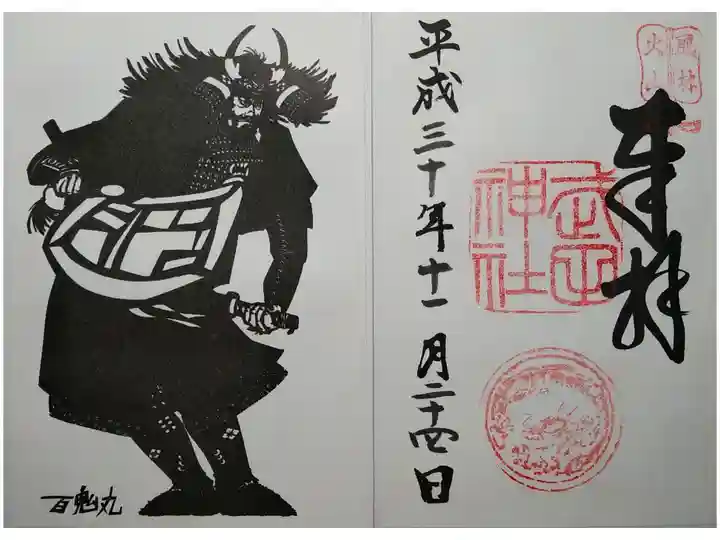 風林
火山
奉拝
武田
神社
平成三十年十一月二十四日
百鬼丸